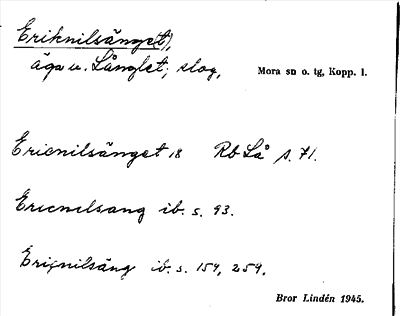 Eriknilsänget),
äga u. Långlet; slog,
Mora sn o. tg, Kopp. l.
Ericnilsänget 18 Rb Så s. 71.
Ericnilsang ib. s. 93.
Ericnilsäng ib. s. 159, 259.
Bror Lindén 1945.